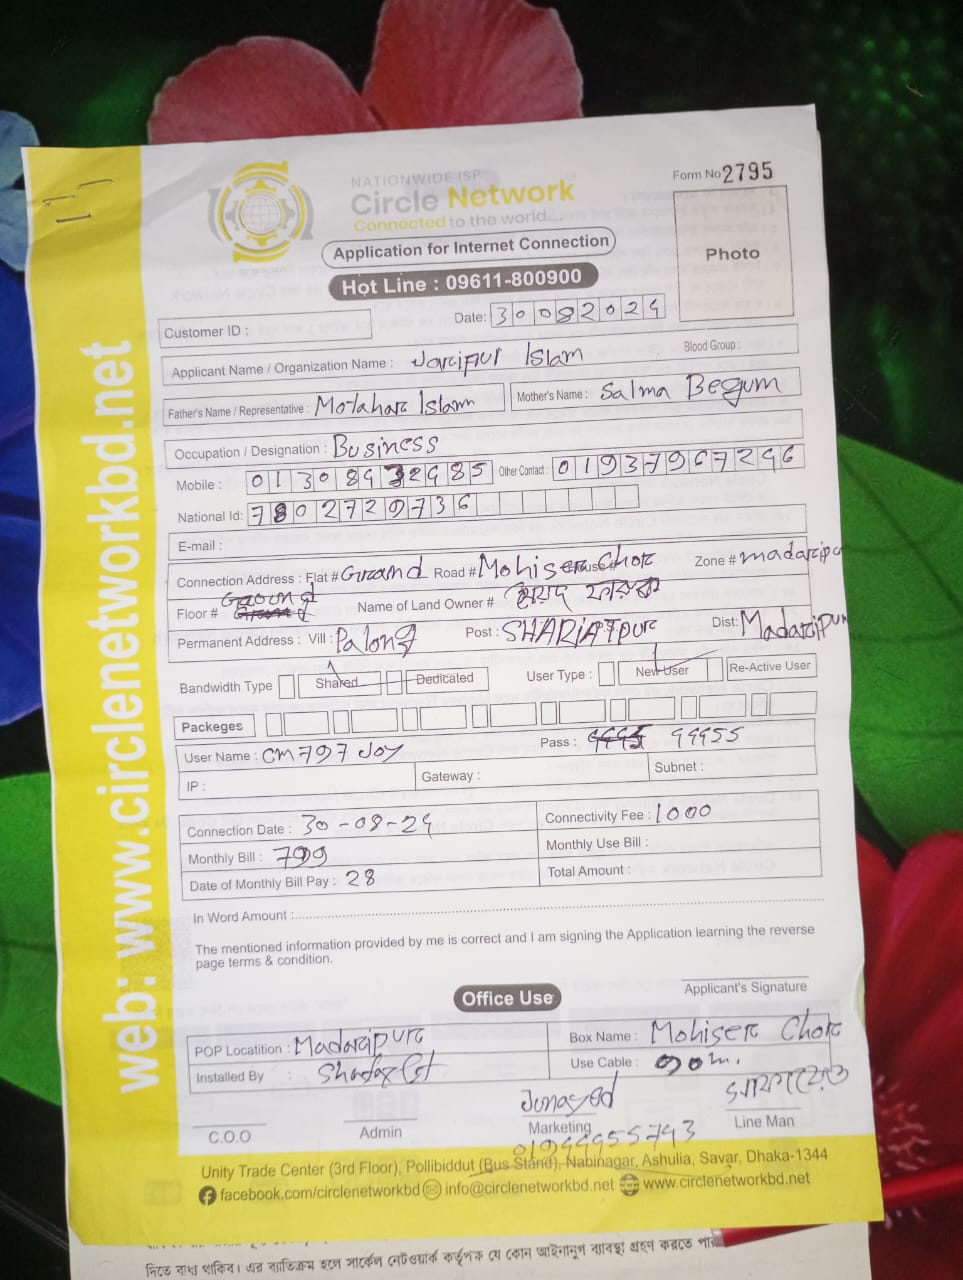 NATIONWIDE ISP
Circle Network
Connected to the world....
Form No 2795
Photo
Application for Internet Connection
Hot Line : 09611-800900
Date: 30082024
Customer ID :
Applicant Name / Organization Name : Islam
Blood Group :
Father's Name / Representative : Motahar Islam
Mother's Name : Salma Begum
Occupation / Designation : Business
Mobile :
Other Contact : 01937967296
National Id:
E-mail :
Connection Address : Flat # Road # Mohiser Chor Zone #
Floor # Name of Land Owner #
Permanent Address : Vill : Palong Post : SHARIATpur Dist: Madaripur
Bandwidth Type Shared Dedicated User Type : New User Re-Active User
Packeges
User Name : CM797 JOY Pass : 99955
IP : Gateway : Subnet :
Connection Date : 30-08-24 Connectivity Fee : 1000
Monthly Bill : 799 Monthly Use Bill :
Date of Monthly Bill Pay : 28 Total Amount :
In Word Amount :
The mentioned information provided by me is correct and I am signing the Application learning the reverse
page terms & condition.
Applicant's Signature
Office Use
POP Locatition : Madaripur Box Name : Mohiser Chor
Installed By : Use Cable :
Junayed
C.O.O Admin Marketing Line Man
Unity Trade Center (3rd Floor), Pollibiddut (Bus Stand), Nabinagar, Ashulia, Savar, Dhaka-1344
facebook.com/circlenetworkbd info@circlenetworkbd.net www.circlenetworkbd.net
web: www.circlenetworkbd.net
দিতে বাধ্য থাকিব। এর ব্যতিক্রম হলে সার্কেল নেটওয়ার্ক কর্তৃপক্ষ যে কোন আইনানুগ ব্যবস্থা গ্রহণ করতে